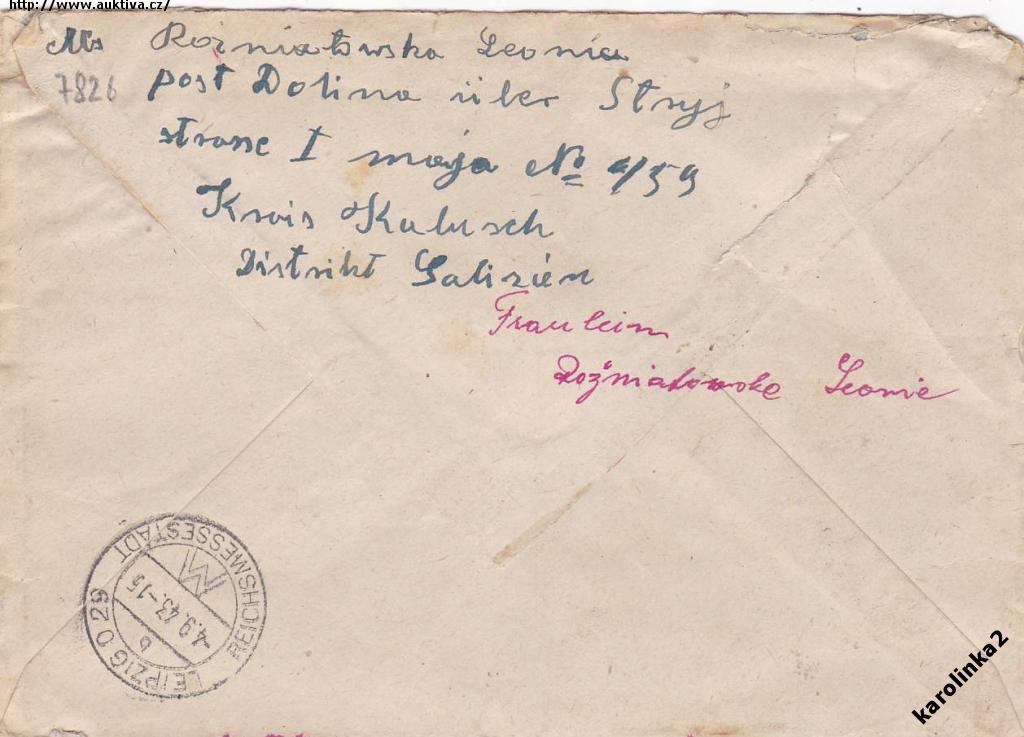 http://www.auktiva.cz/
Ms Rozniatowska Leonia
7826
post Dolina über Stryj
strasse I maja No 4/59
Krois Kalusch
Distrikt Galizien
Fraulein
Rožniatowske Leonie
LEIPZIG O 29
REICHSMESSESTADT
-4.9.43.-15
b
karolinka2